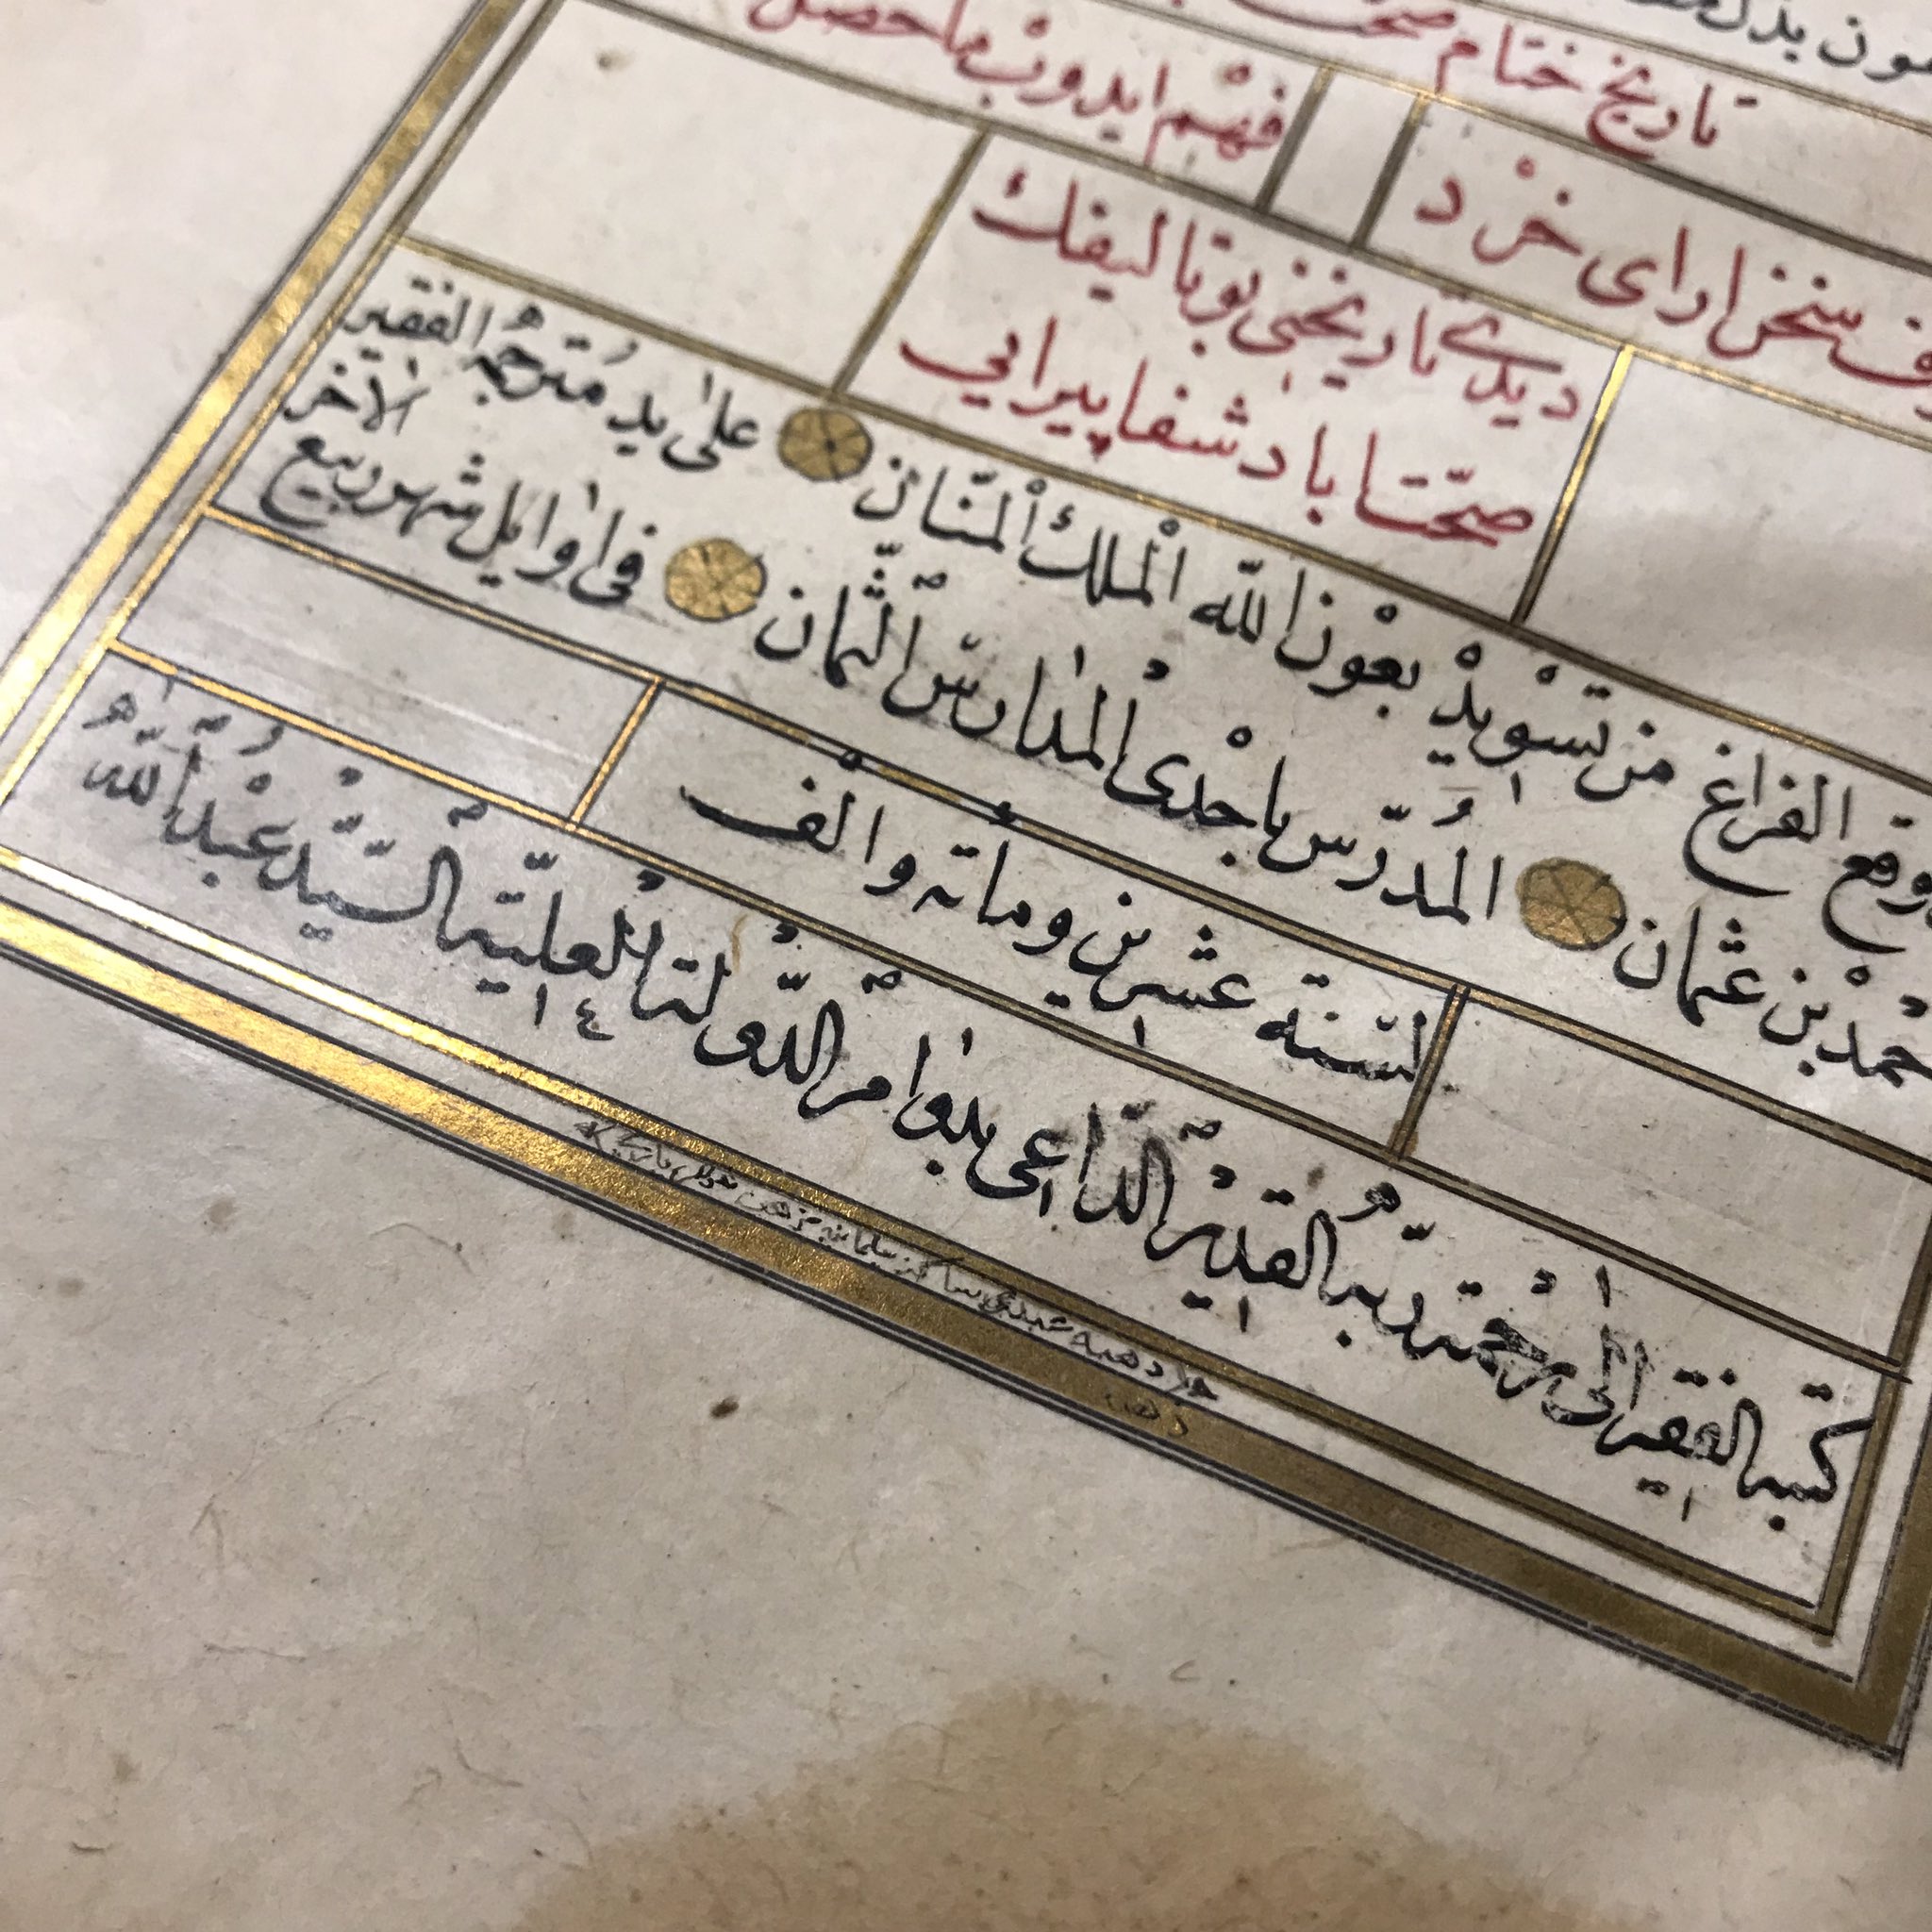 ون بذل
تاريخ ختام صحت
فهم ايدوب ما حصل
سخن اراى خرد
ديدى تاريخنى بو تاليفك
صحّتاباد شفا پيرايى
وقع الفراغ من تسويد بعون الله الملك المنّان على يد مترجمه الفقير
احمد بن عثمان المدرّس باحدى المدارس الثمان فى اوايل شهر ربيع الاخر
لسنة عشرين ومأته والف
كتبه الفقير الى رحمة ربه القدير الداعى بدوام الدّولة العليّة السيّد عبد الله
١٤